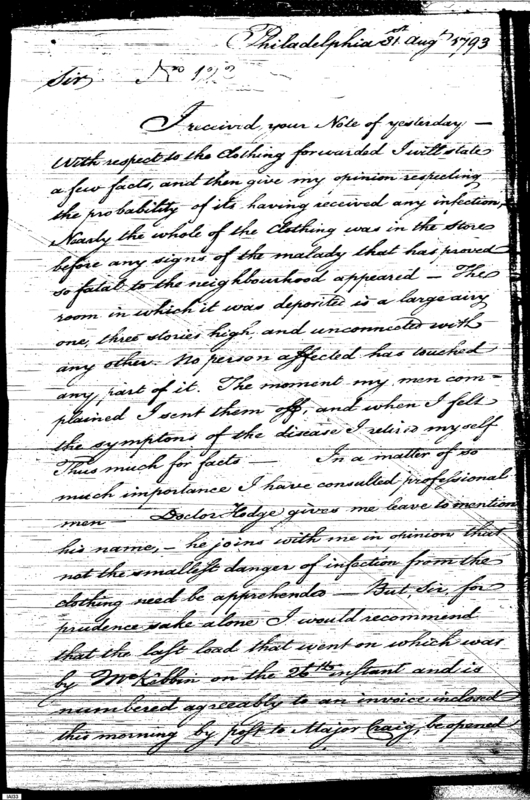 Philadelphia 31st Augt. 1793
Sir
I received your Note of yesterday —
With respect to the Clothing forwarded I will state
a few facts, and then give my opinion respecting
the probability of its having received any infection,
Nearly the whole of the Clothing was in the store
before any signs of the malady that has proved
so fatal to the neighbourhood appeared — The
room in which it was deposited is a large airy
one, three stories high, and unconnected with
any other. No person affected has touched
any part of it. The moment my men com-
plained I sent them off, and when I felt
the symptons of the disease I retired myself
Thus much for facts — In a matter of so
much importance I have consulted professional
men — Doctor Hodge gives me leave to mention
his name, — he joins with me in opinion that
not the smallest danger of infection from the
clothing need be apprehended — But Sir, for
prudence sake alone I would recommend
that the last load that went on which was
by McKibbin on the 26th instant and is
numbered agreeably to an invoice inclosed
this morning by post to Major Craig, be opened